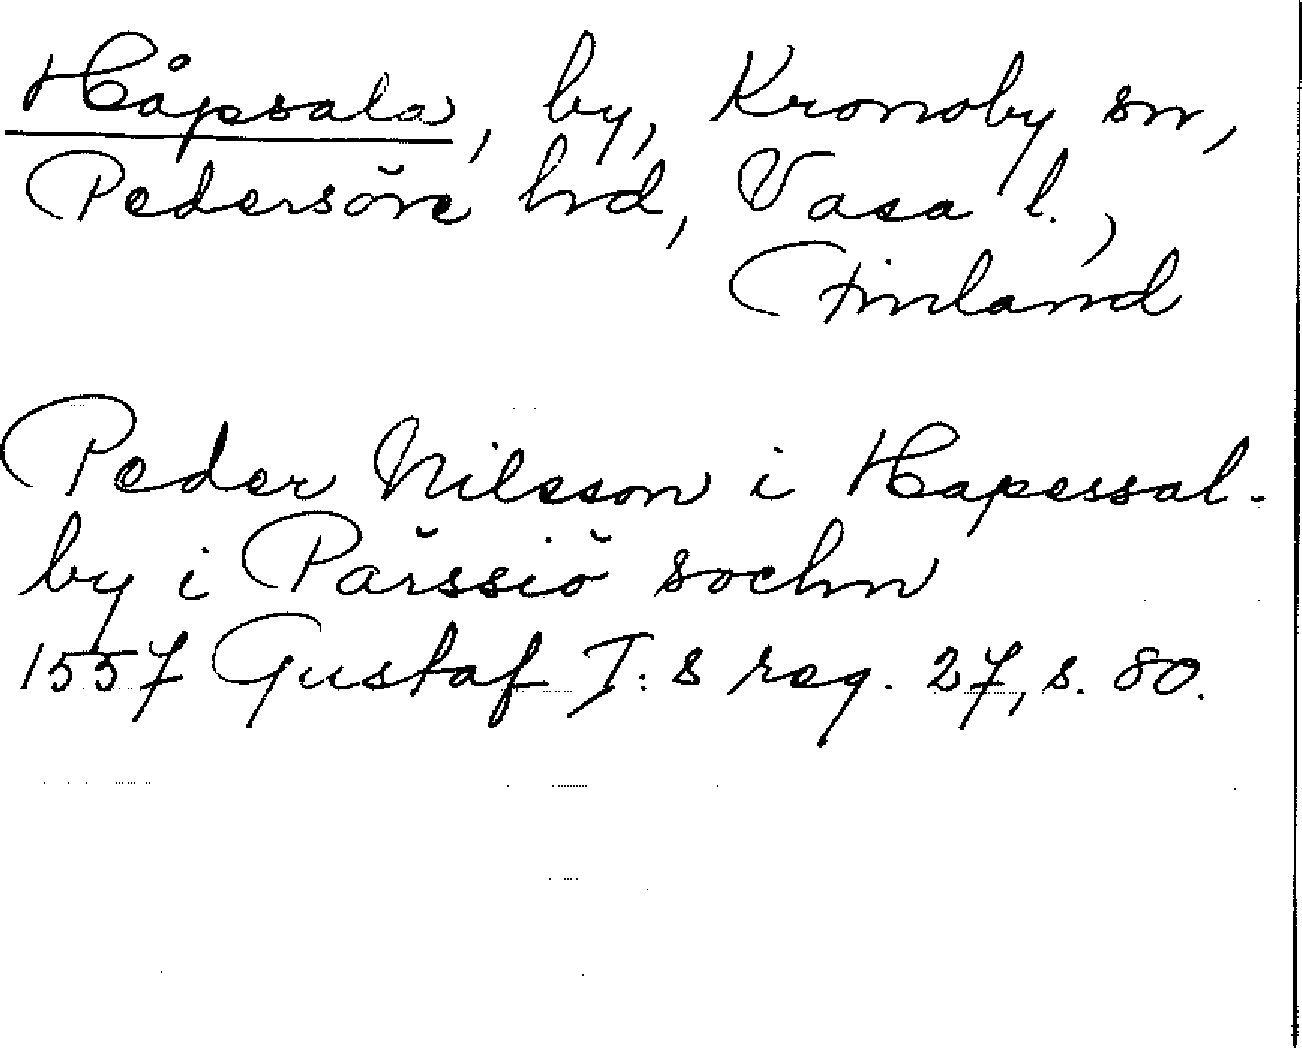 Håpsala, by, Kronoby sn,
Pedersöre hrd, Vasa l.,
Finland
Peder Nilsson i Hapessal-
by i Pärssiö sochn
1557 Gustaf I:s reg. 27, s. 80.